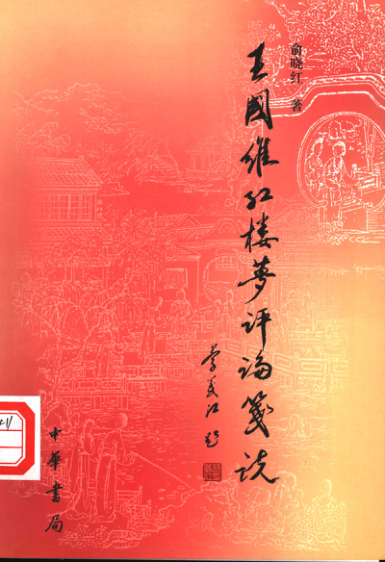 俞晓红 著
王國维红楼夢评论箋说
中華書局